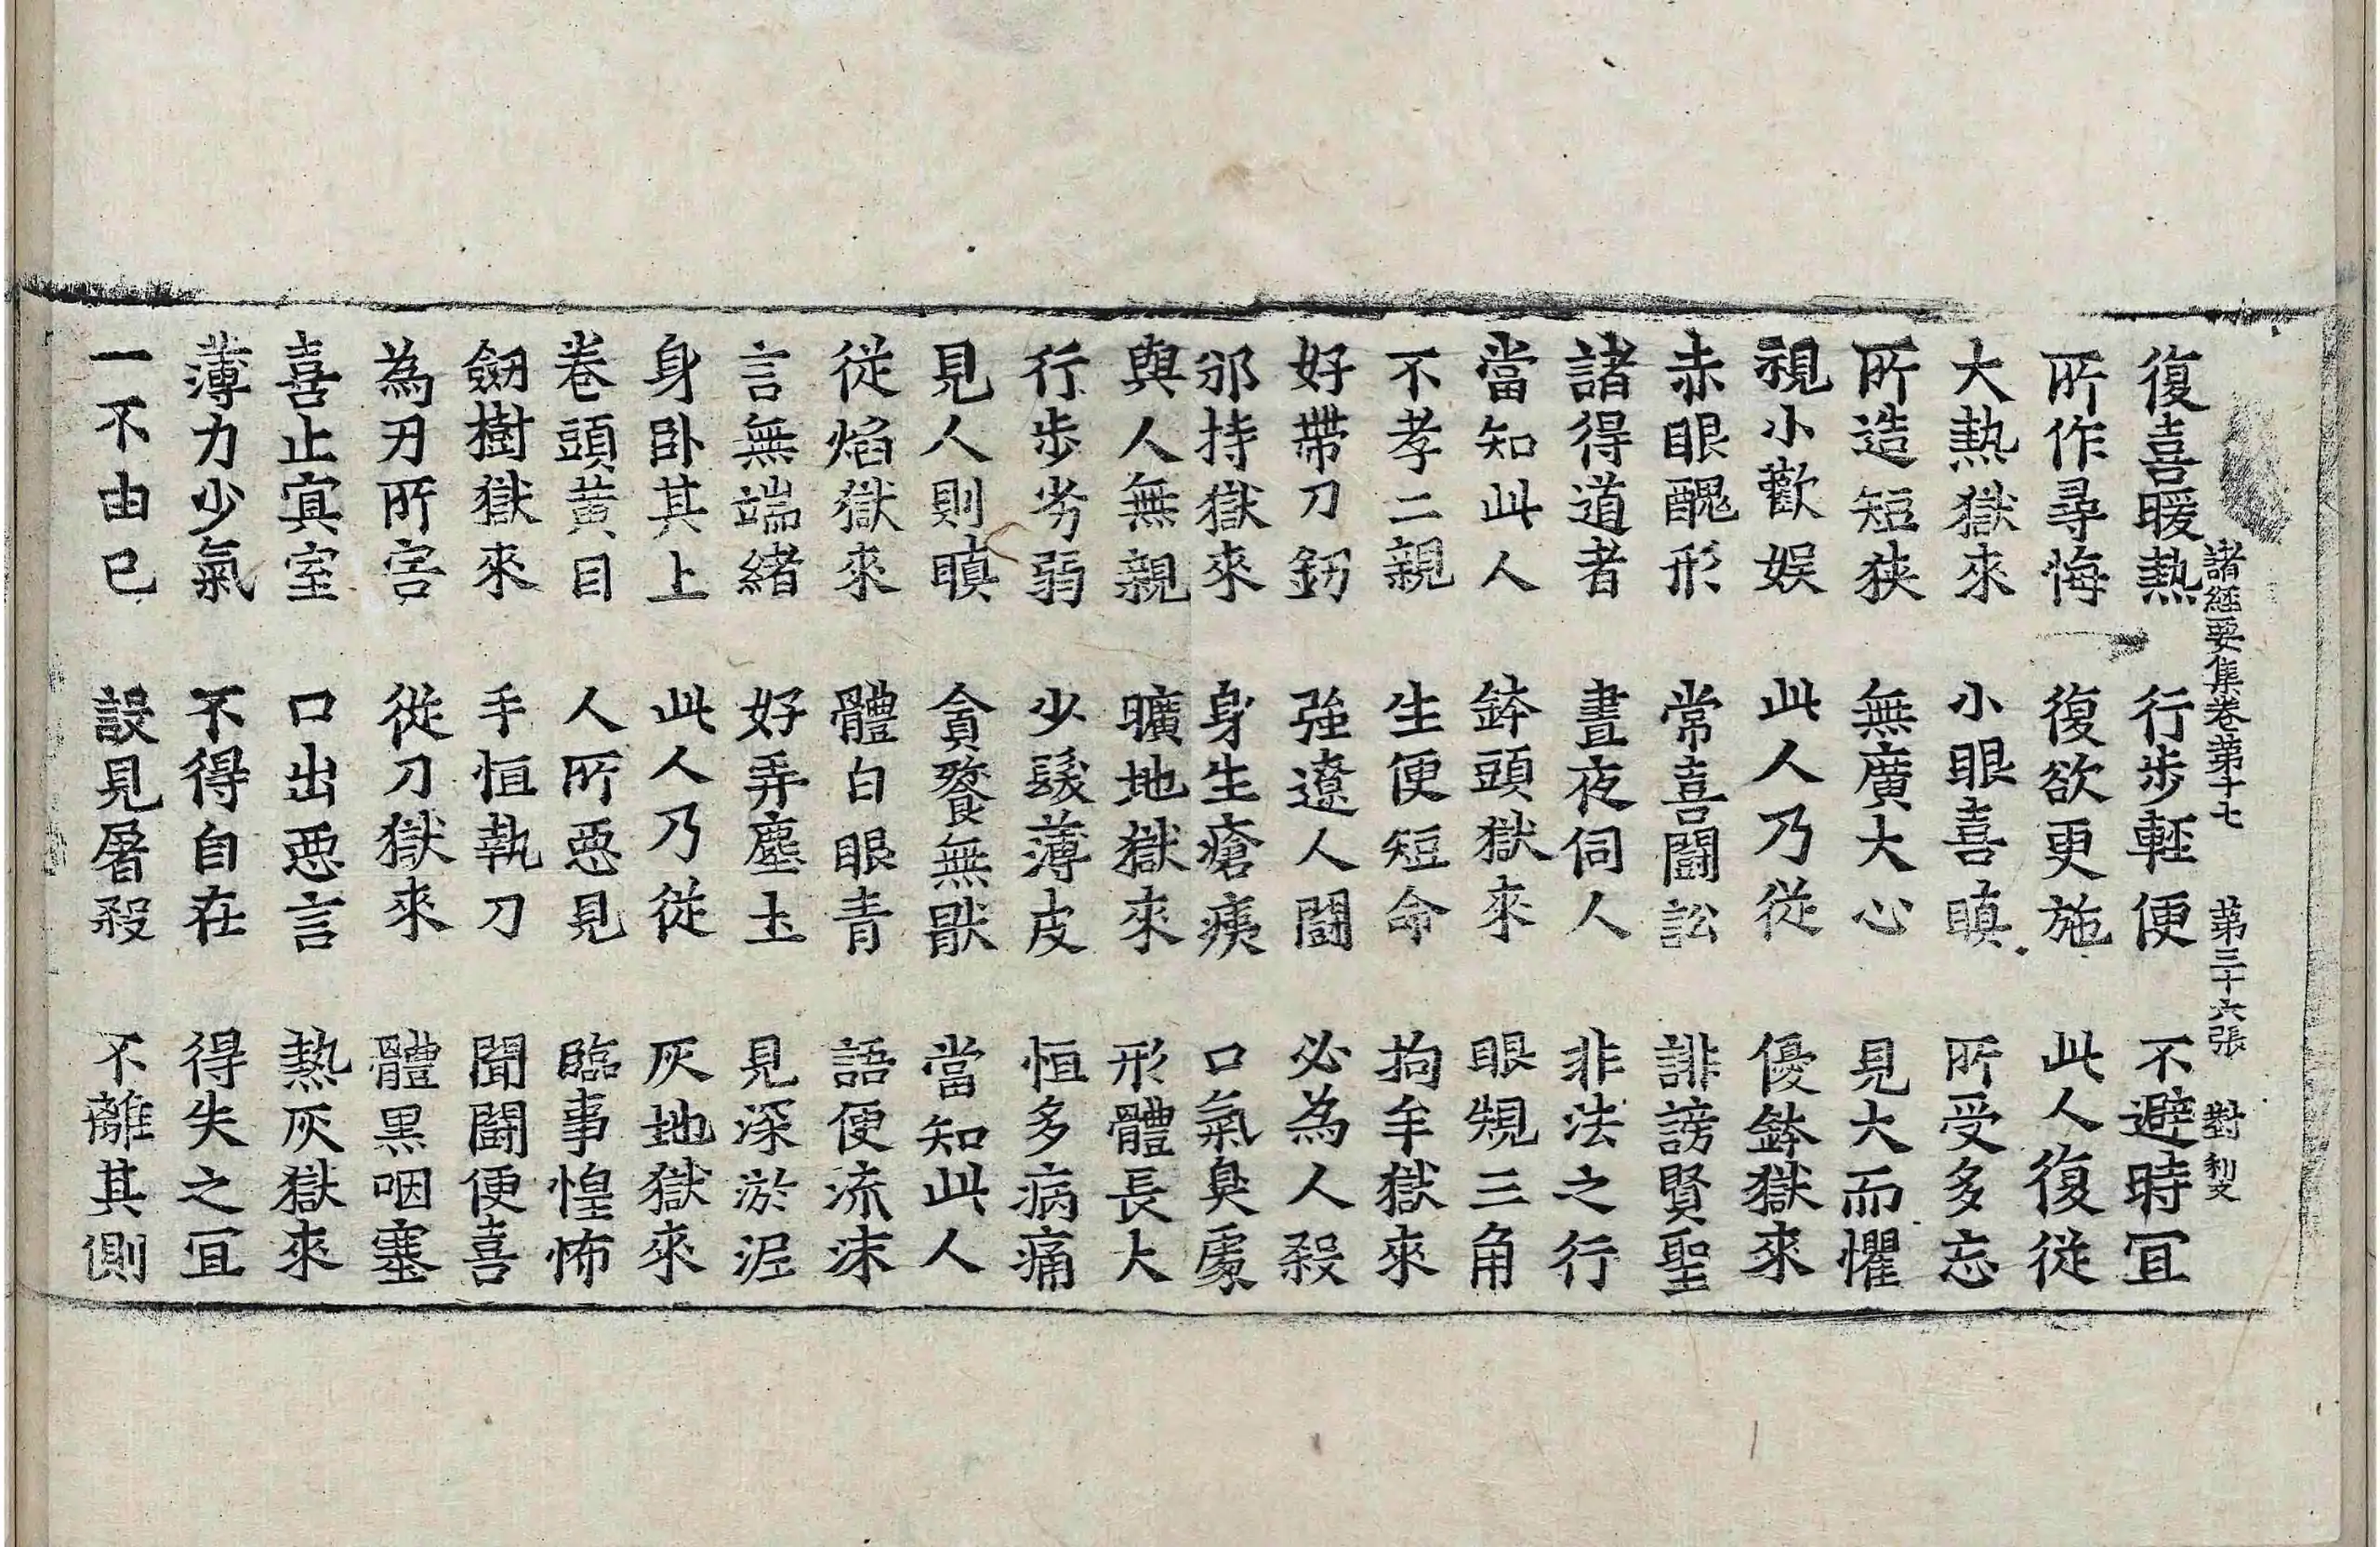 諸經要集卷第十七　第三十六張　對　利文
復喜暖熱　行步輕便　不避時冝
所作尋悔　復欲更施　此人復從
大熱獄來　小眼喜瞋　所受多忘
所造短狹　無廣大心　見大而懼
視小歡娛　此人乃從　優鉢獄來
赤眼醜形　常喜鬪訟　誹謗賢聖
諸得道者　晝夜伺人　非法之行
當知此人　鉢頭獄來　眼䂓三角
不孝二親　生便短命　拘牟獄來
好帶刀釰　強遼人鬪　必為人殺
邠持獄來　身生瘡痍　口氣臭處
與人無親　曠地獄來　形體長大
行步劣弱　少髮薄皮　恒多病痛
見人則瞋　貪餮無猒　當知此人
從焰獄來　體白眼青　語便流沫
言無端緒　好弄塵土　見深淤泥
身卧其上　此人乃從　灰地獄來
卷頭黃目　人所惡見　臨事惶怖
劒樹獄來　手恒執刀　聞鬪便喜
為刃所害　從刀獄來　體黑咽塞
喜止㝠室　口出惡言　熱灰獄來
薄力少氣　不得自在　得失之冝
一不由已　設見屠殺　不離其側